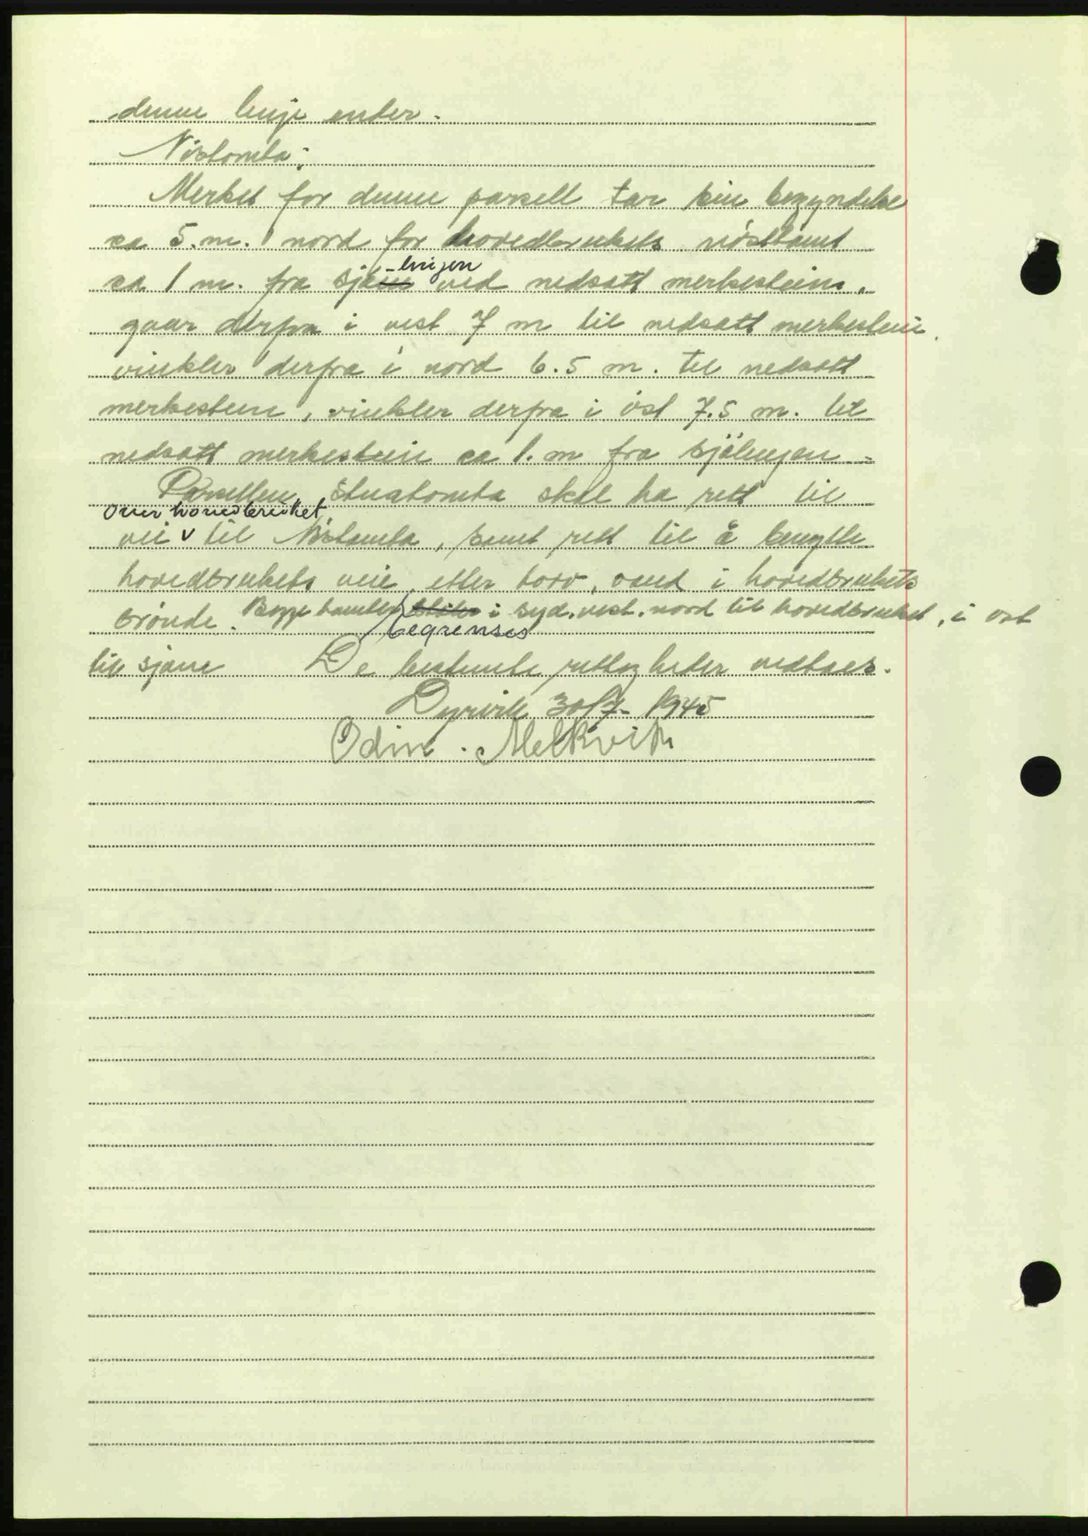 denne linje ender.
Nöstomta:
Merket for denne parsell tar sin begyndelse
ca 5. m. i nord for hovedbrukets nösttomt
ca 1 m. fra sjö-linjen ved nedsatt merkestein,
gaar derfra i vest 7 m til nedsatt merkestein,
vinkler derfra i nord 6.5 m. til nedsatt
merkestein, vinkler derfra i öst 7.5 m. til
nedsatt merkestein ca 1. m fra sjölinjen.
Parsellen Stuatomta skal ha rett til
over hovedbruket
vei v til Nöstomta, samt rett til å benytte
hovedbrukets veie etter torv, vand i hovedbrukets
brönde. Begge tomter i syd. vest. nord til hovedbruket, i ost
begrenses
til sjöen De bestemte rettigheter vedtaes.
Dyrvik 30/7- 1945
Odin . Melkvik